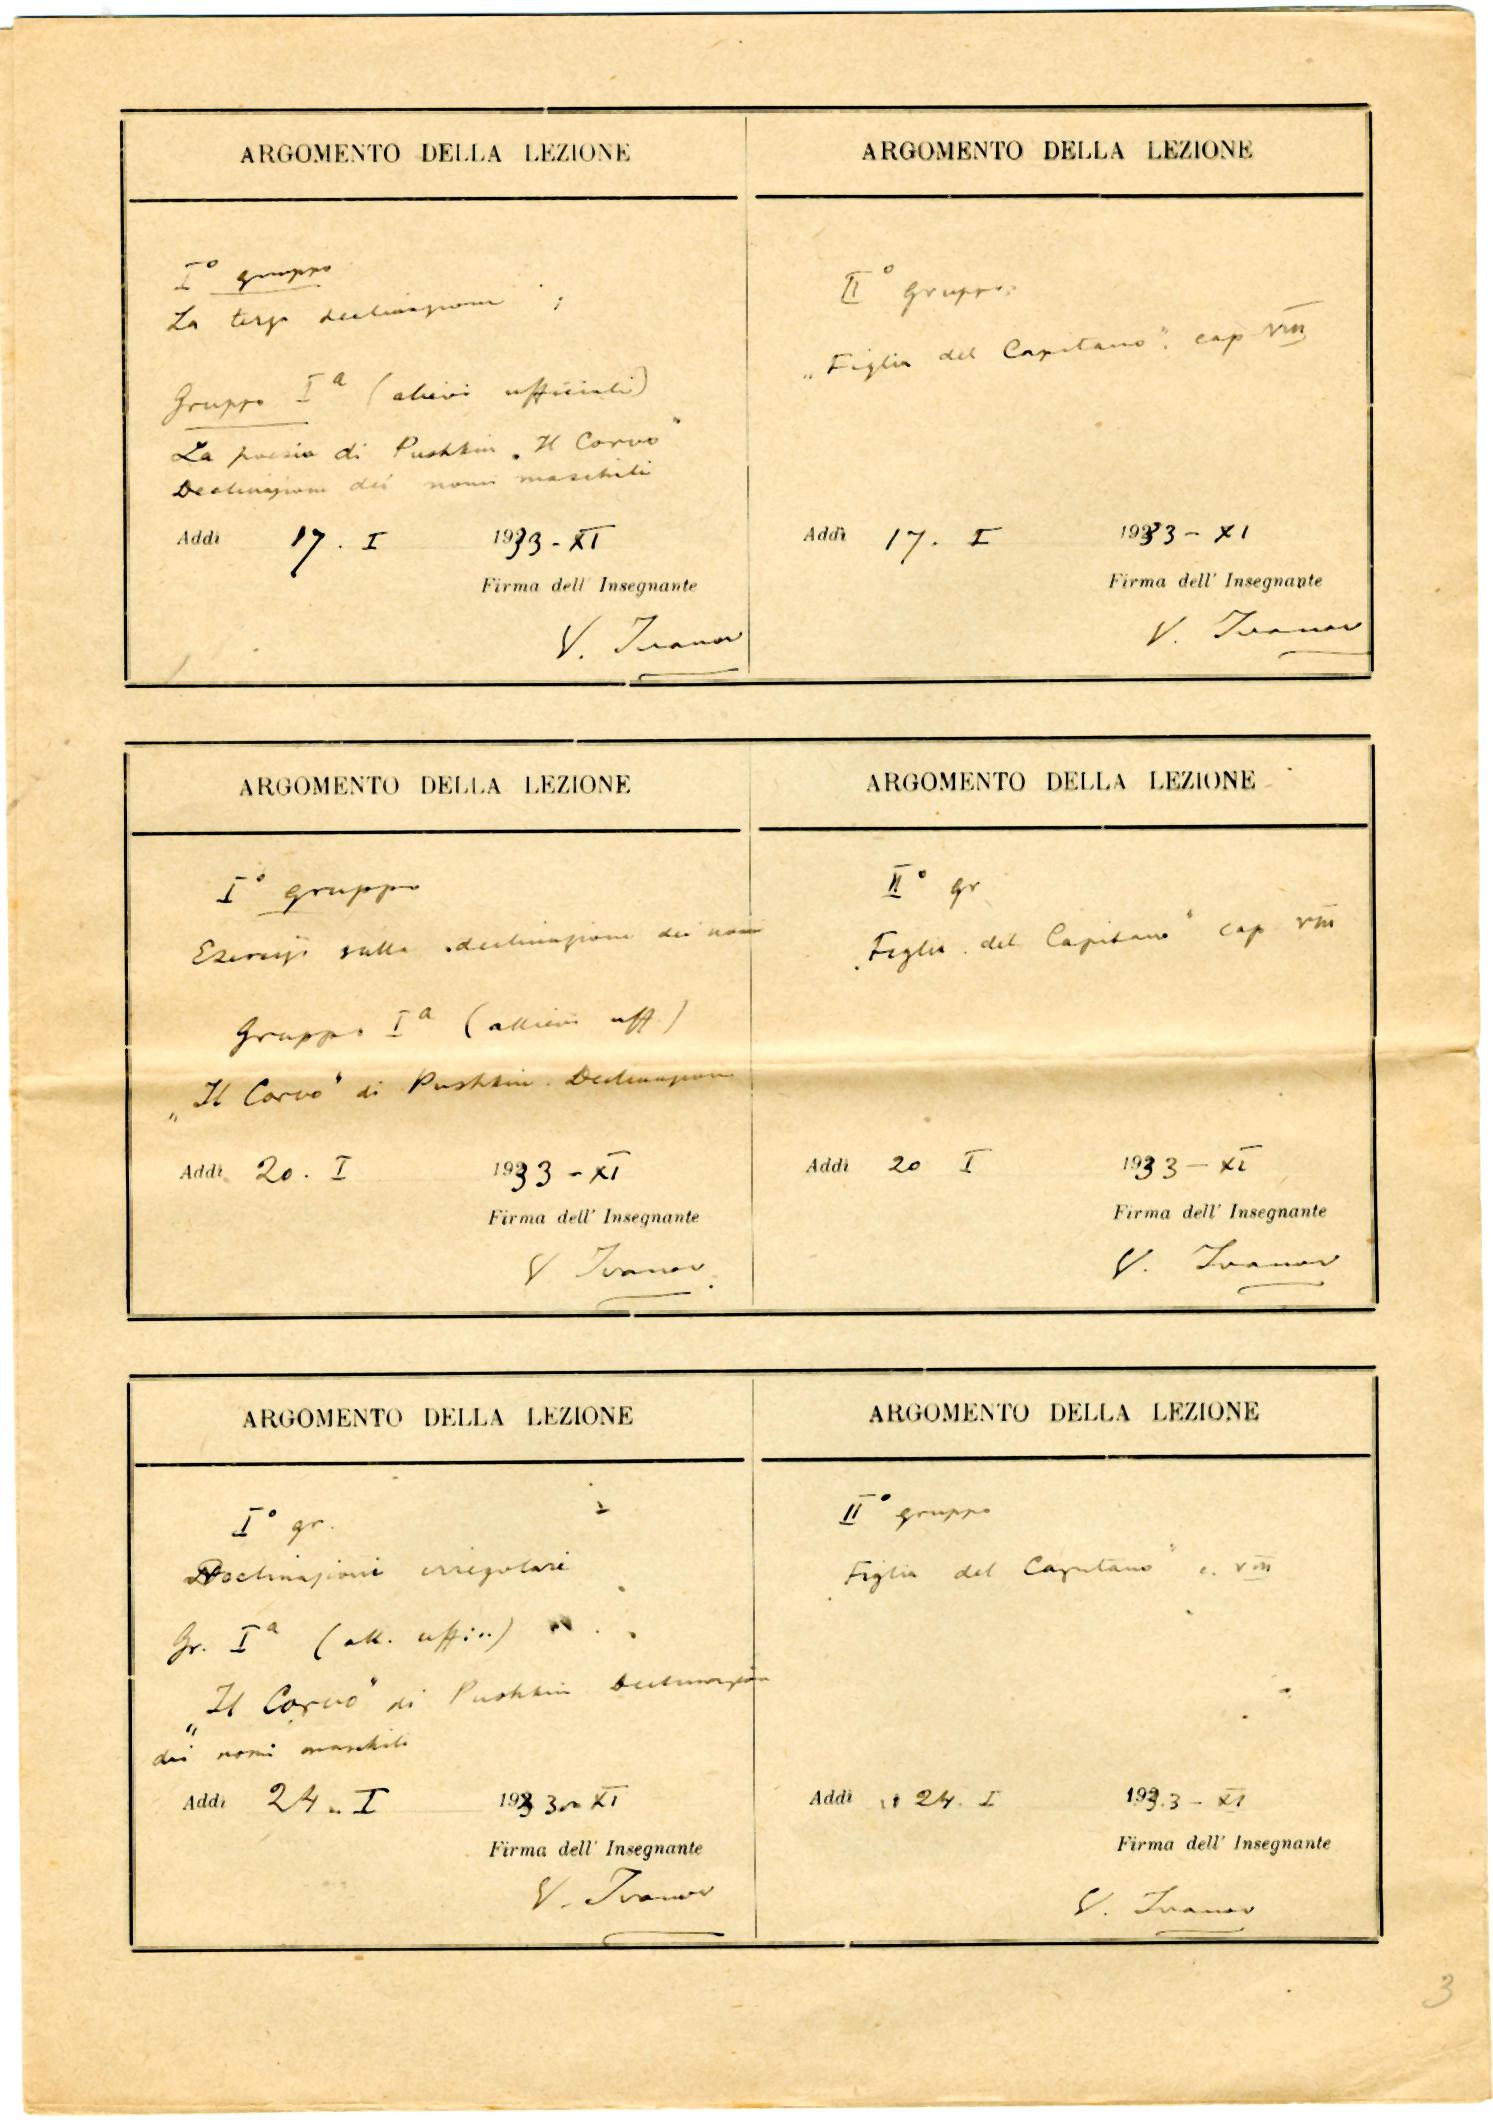 ARGOMENTO DELLA LEZIONE
I° gruppo
La terza declinazione
Gruppo Iª (allievi ufficiali)
La poesia di Pushkin „Il Corvo"
Declinazione dei nomi maschili
Addì 17. I 1933-XI
Firma dell' Insegnante
V. Ivanov
ARGOMENTO DELLA LEZIONE
II° gruppo
„Figlia del Capitano". cap VIII
Addì 17. I 1933 - XI
Firma dell' Insegnante
V. Ivanov
ARGOMENTO DELLA LEZIONE
I° gruppo
Esercizi sulla declinazione dei nomi
Gruppo Iª (allievi uff.)
„Il Corvo" di Pushkin. Declinazione
Addì 20. I 1933 - XI
Firma dell' Insegnante
V Ivanov
ARGOMENTO DELLA LEZIONE
II° gr
„Figlia del Capitano" cap VIII
Addì 20 I 1933 - XI
Firma dell' Insegnante
V. Ivanov
ARGOMENTO DELLA LEZIONE
I° gr.
Declinazioni irregolari
Gr. Iª (all. uffi..)
„Il Corvo" di Pushkin Declinazione
dei nomi maschili
Addì 24. I 1933 - XI
Firma dell' Insegnante
V. Ivanov
ARGOMENTO DELLA LEZIONE
II° gruppo
„Figlia del Capitano" c. VIII
Addì 24. I 1933 - XI
Firma dell' Insegnante
V. Ivanov
3